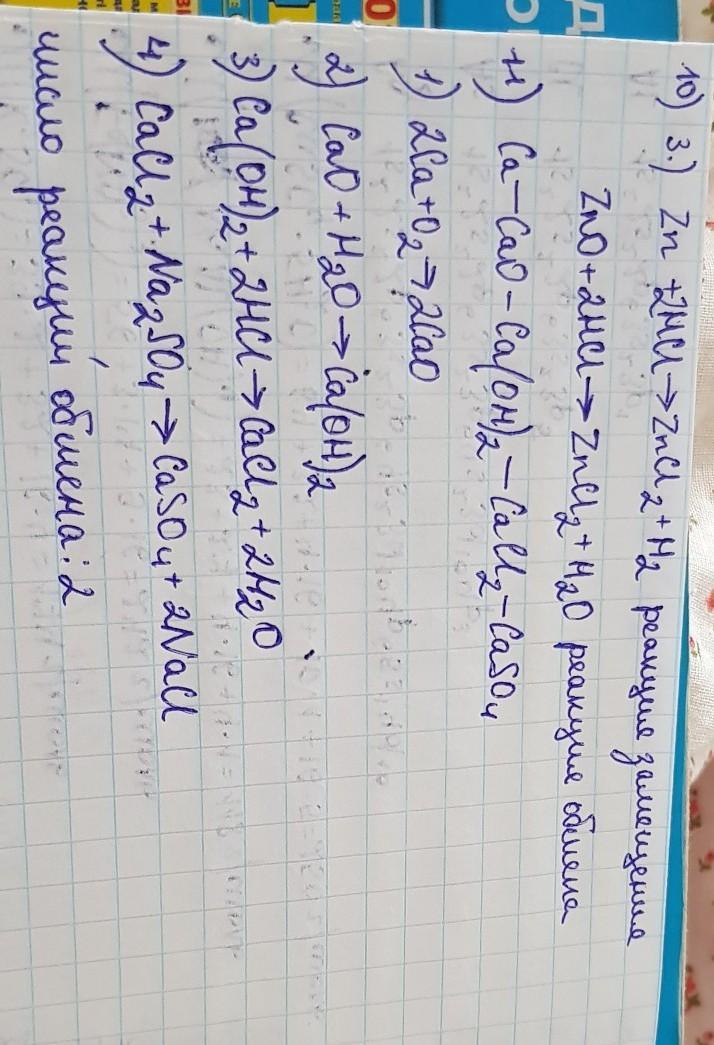 10) 3.) Zn + 2HCl → ZnCl₂ + H₂ реакция замещения
ZnO + 2HCl → ZnCl₂ + H₂O реакция обмена
11) Ca – CaO – Ca(OH)₂ – CaCl₂ – CaSO₄
1) 2Ca + O₂ → 2CaO
2) CaO + H₂O → Ca(OH)₂
3) Ca(OH)₂ + 2HCl → CaCl₂ + 2H₂O
4) CaCl₂ + Na₂SO₄ → CaSO₄ + 2NaCl
число реакций обмена: 2